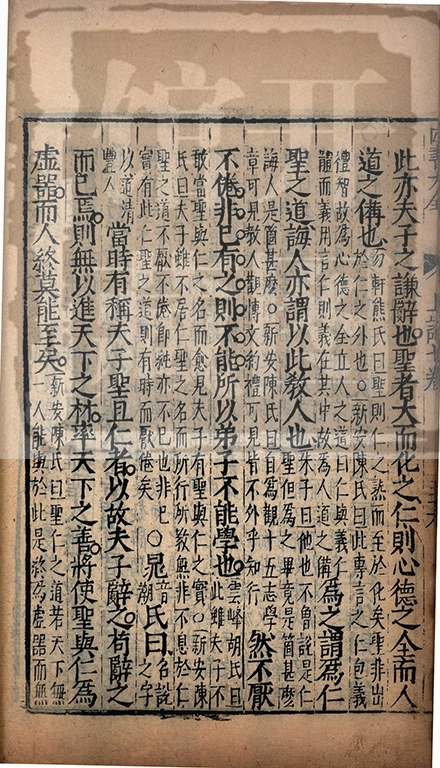 此亦夫子之謙辭也聖者大而化之仁則心德之全而人
道之備也
勿軒熊氏曰聖則仁之熟而至於化矣聖非出
於仁之外也○新安陳氏曰此專言之仁包義
禮智故為心德之全立人之道曰仁與義仁
體而義用言仁則義在其中故為人道之備
為之謂為仁
聖之道誨人亦謂以此教人也
朱子曰他也不曾說是仁
聖但為之畢竟是箇甚麼
誨人是箇甚麼○新安陳氏曰自為觀十五志學
章可見教人觀博文約禮可見皆不外乎知行
然不厭
不倦非己有之則不能所以弟子不能學也
雲峰胡氏曰
此雖夫子不
敢當聖與仁之名而愈見夫子有聖與仁之實○新安陳
氏曰夫子雖不居仁聖之名而所行所教無非不息於仁
聖之道不厭不倦即純亦不已也非己
實有此仁聖之道則有時而厭倦矣
○晁
音
潮
氏曰
名說
之字
以道清
豐人
當時有稱夫子聖且仁者以故夫子辭之苟辭之
而已焉則無以進天下之材率天下之善將使聖與仁為
虛器而人終莫能至矣
新安陳氏曰聖仁之道若天下無
一人能與於此是終為虛器而無